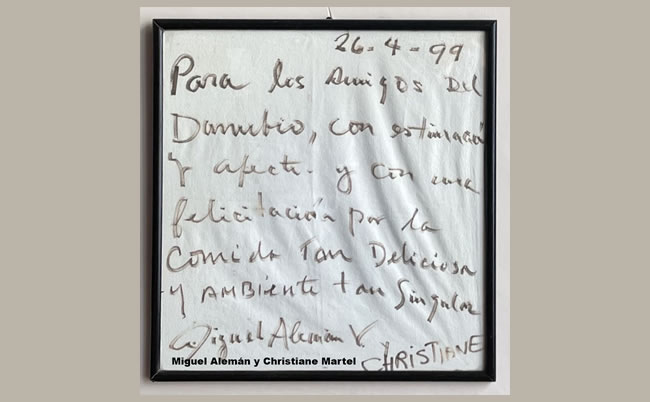 26-4-99
Para los Amigos Del
Danubio, con estimación
Y afecto y con una
felicitación por la
Comida Tan Deliciosa
Y AMBiENTE tan Singular
Miguel Alemán V.
y CHRiSTIANE
Miguel Alemán y Christiane Martel